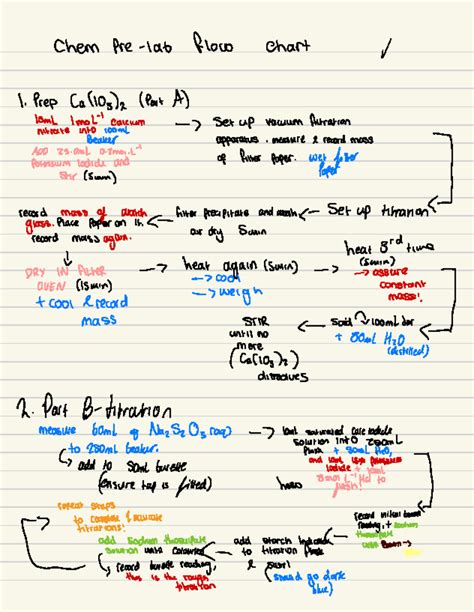 Chem Pre-lab Flow chart
1. Prep Ca(IO3)2 (Part A)
10mL 1mol L-1 calcium
nitrate into 100mL
Beaker
Add 25.0mL 0.2mol L-1
Potassium Iodide and
Stir (5min)
→ Set up vacuum filtration
apparatus. measure & record mass
of filter paper. wet filter
Paper
Set up titration
filter precipitate and wash
air dry 5min
record mass of watch
glass. Place Paper on it.
record mass again.
DRY IN FILTER
OVEN (15min)
+ cool & record
mass
→ heat again (5min)
→ cool
→ weigh
heat 3rd time
(5min)
→ assure
constant
mass!
→ 100ml
+ 80mL H2O
(distilled)
STIR
until no
more
(Ca(IO3)2)
dissolves
2. Part B-titration
measure 60mL of Na2S2O3 (aq)
to 250mL beaker.
add to 50ml burette
(ensure tap is filled)
→ 10mL saturated
solution into 250mL
flask + 50mL H2O,
and
iodide + 10mL
HCl to
flask!
record initial
reading, + sodium
thiosulfate
until
add starch
to titration flask
& swirl
(should go dark
blue)
add sodium thiosulfate
solution until colourless
record burette reading,
this is the rough
titration
repeat steps
to complete accurate
titrations!